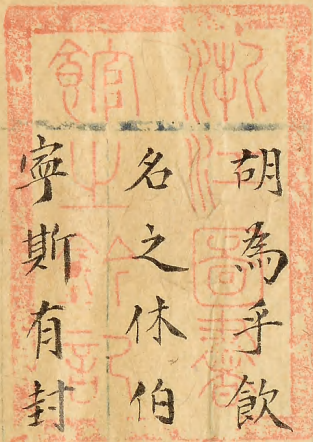 胡為乎飲
名之休伯
寧斯有封
浙江圖書
館之印記